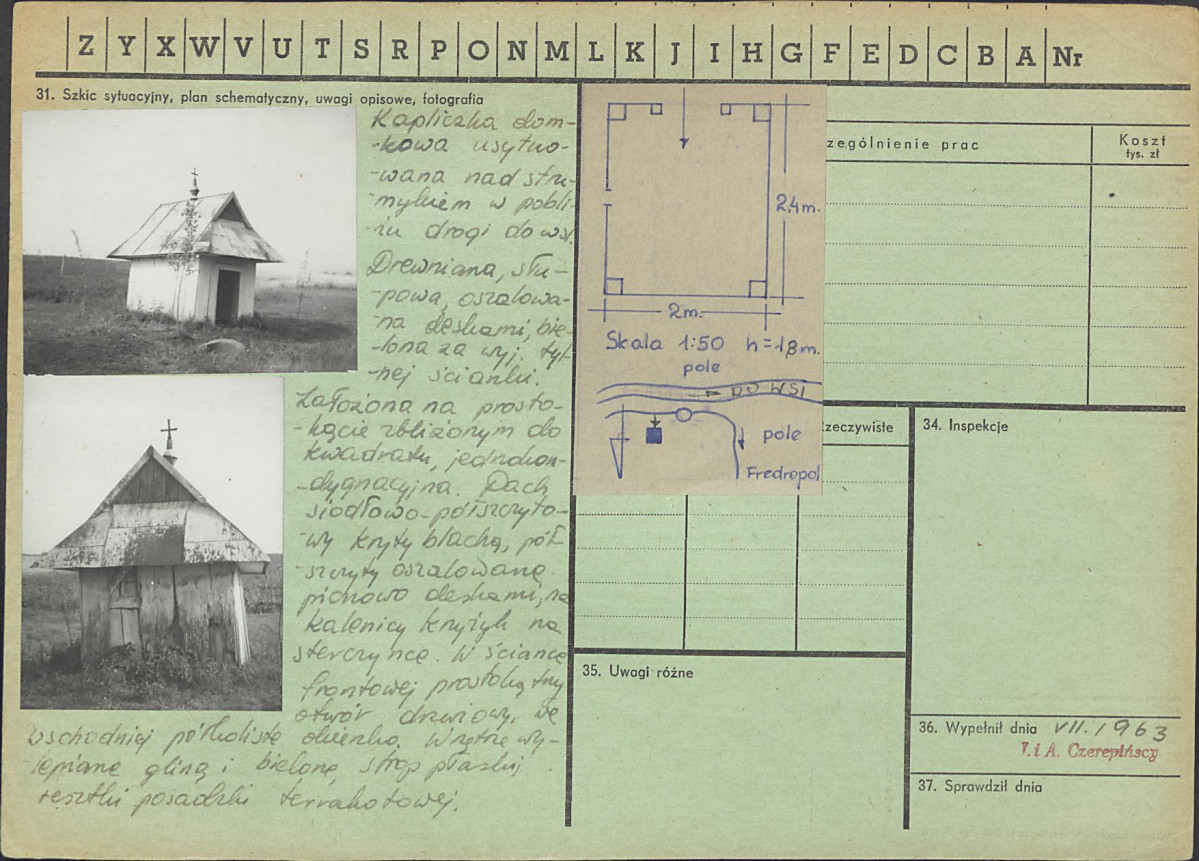 Z Y X W V U T S R P O N M L K J I H G F E D C B A Nr
31. Szkic sytuacyjny, plan schematyczny, uwagi opisowe, fotografia
Kapliczka dom-
-kowa usytuo-
-wana nad stru-
-mykiem w pobli-
-żu drogi do wsi.
Drewniana, słu-
-powa, oszalowa-
-na deskami, bie-
-lona za wyj. tyl-
-nej ścianki.
Założona na prosto-
-kącie zbliżonym do
kwadratu, jednokon-
-dygnacyjna. Dach
siodłowo-półszczyto-
-wy kryty blachą, pół-
-szczyty oszalowane
pionowo deskami, na
kalenicy krzyżyk na
sterczynce. W ściance
frontowej prostokątny
otwór drzwiowy, we
wschodniej półkoliste okienko. Wnętrze wy-
-lepiane gliną i bielone, strop płaski,
resztki posadzki terrakotowej.
2,4m.
2m.
Skala 1:50 h=1,8m.
pole
DO WSI
pole
Fredropol
zególnienie prac
Koszt
tys. zł
zeczywiste
34. Inspekcje
35. Uwagi różne
36. Wypełnił dnia VII.1963
i A. Czerepińscy
37. Sprawdził dnia